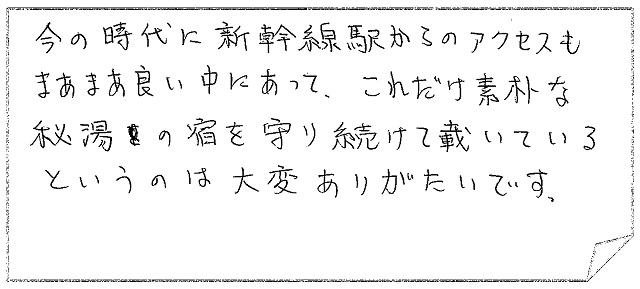 今の時代に新幹線駅からのアクセスも
まあまあ良い中にあって、これだけ素朴な
秘湯の宿を守り続けて載いている
というのは大変ありがたいです。